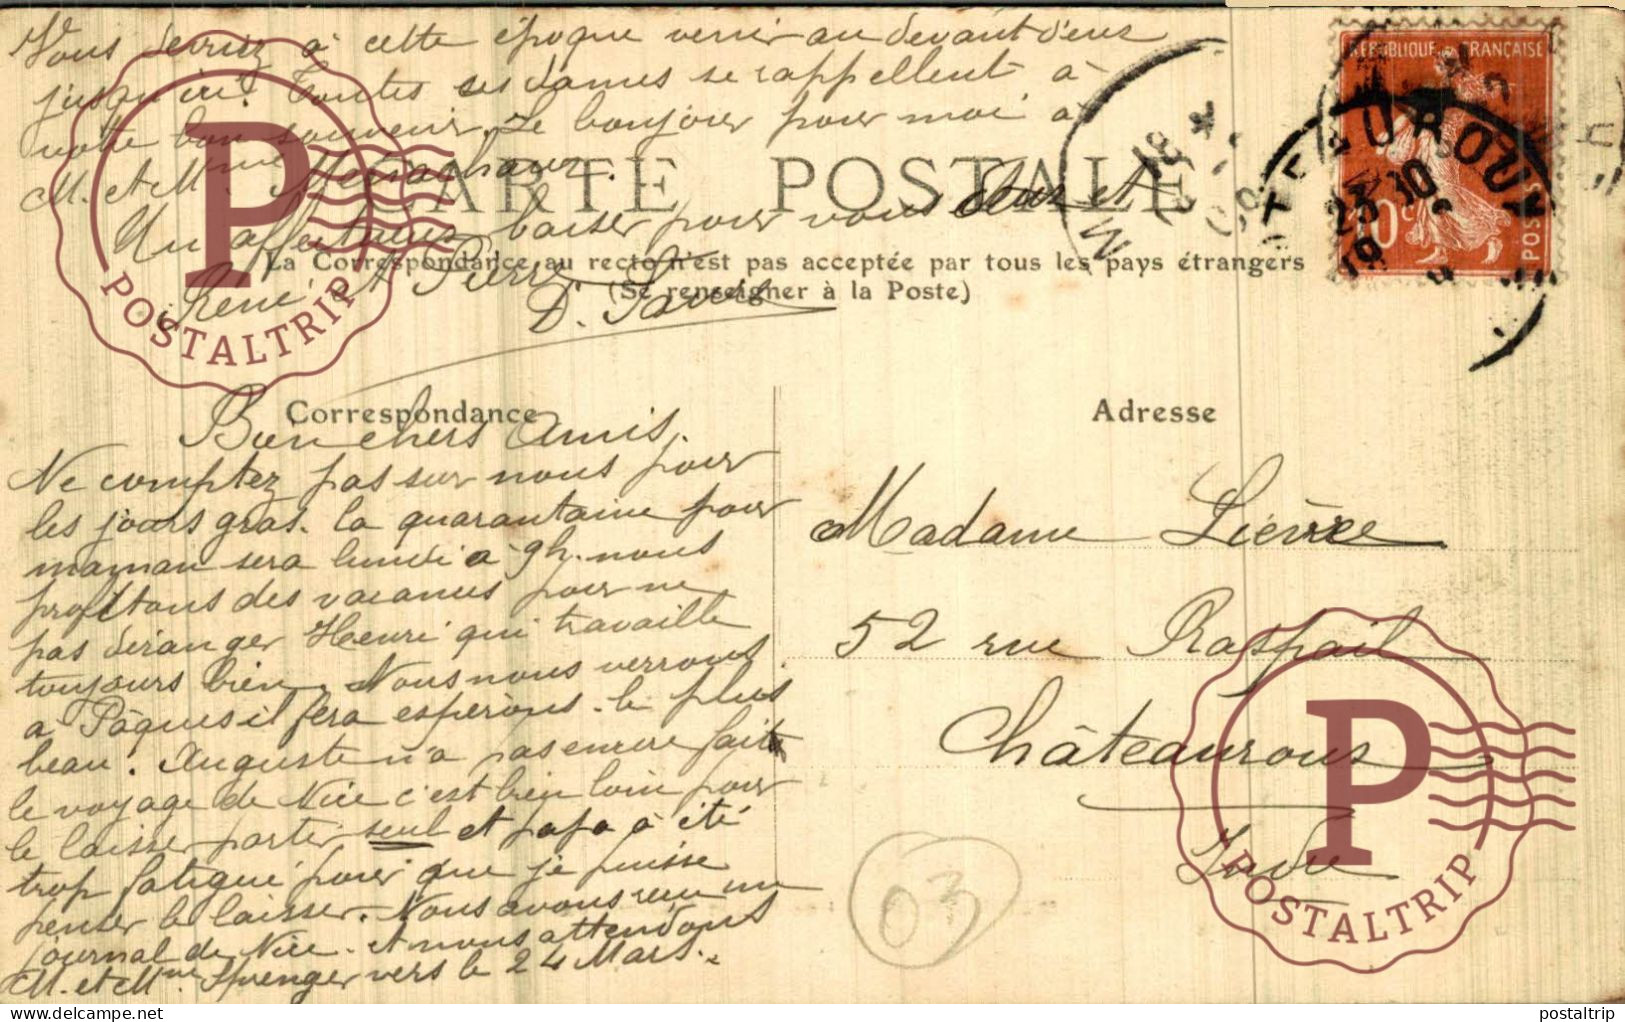 Vous devriez à cette époque venir au devant d'eux
jusqu'ici. Toutes ces dames se rappellent à
votre bon souvenir. Le bonjour pour moi à
M. et Mme
Un affectueux baiser pour vous deux et
René et Pierre
D.
CARTE POSTALE
La Correspondance au recto n'est pas acceptée par tous les pays étrangers
(Se renseigner à la Poste)
REPUBLIQUE FRANÇAISE
10c
POSTES
Correspondance
Bien chers Amis.
Ne comptez pas sur nous pour
les jours gras. la quarantaine pour
maman sera lundi a 9h. nous
profitons des vacances pour ne
pas déranger Henri qui travaille
toujours bien. Nous nous verrons
a Pâques il fera espérons-le plus
beau. Auguste n'a pas encore fait
le voyage de Nice c'est bien loin pour
le laisser partir seul et papa a été
trop fatigué pour que je puisse
penser le laisser. Nous avons reçu un
journal de Nice. et nous attendons
M. et Mme Sprenger vers le 24 Mars.
Adresse
Madame Lièvre
52 rue Raspail
Châteauroux
Indre
03
P
POSTALTRIP
P
POSTALTRIP
delcampe.net
postaltrip